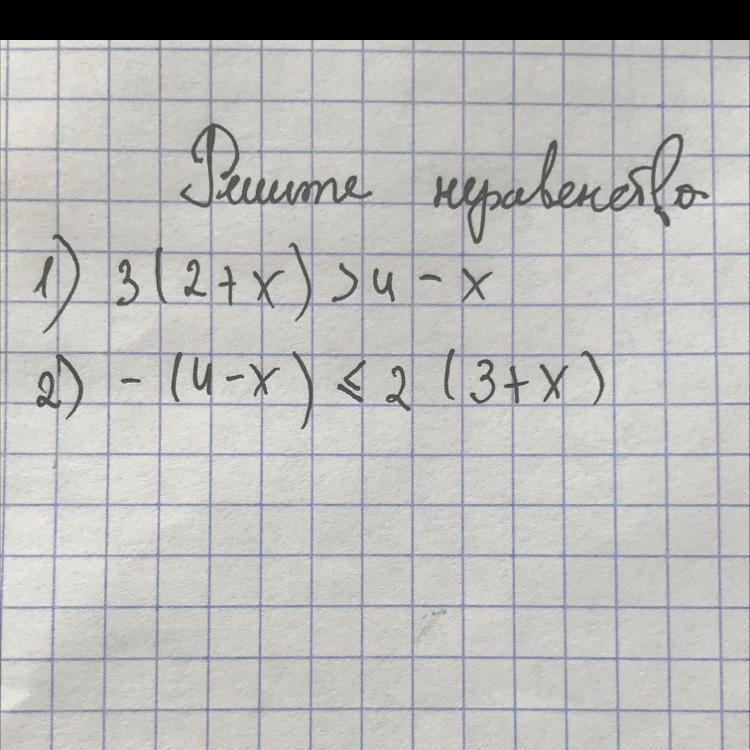 Решите неравенство
1) 3(2+x)>4-x
2) -(4-x)≤2(3+x)